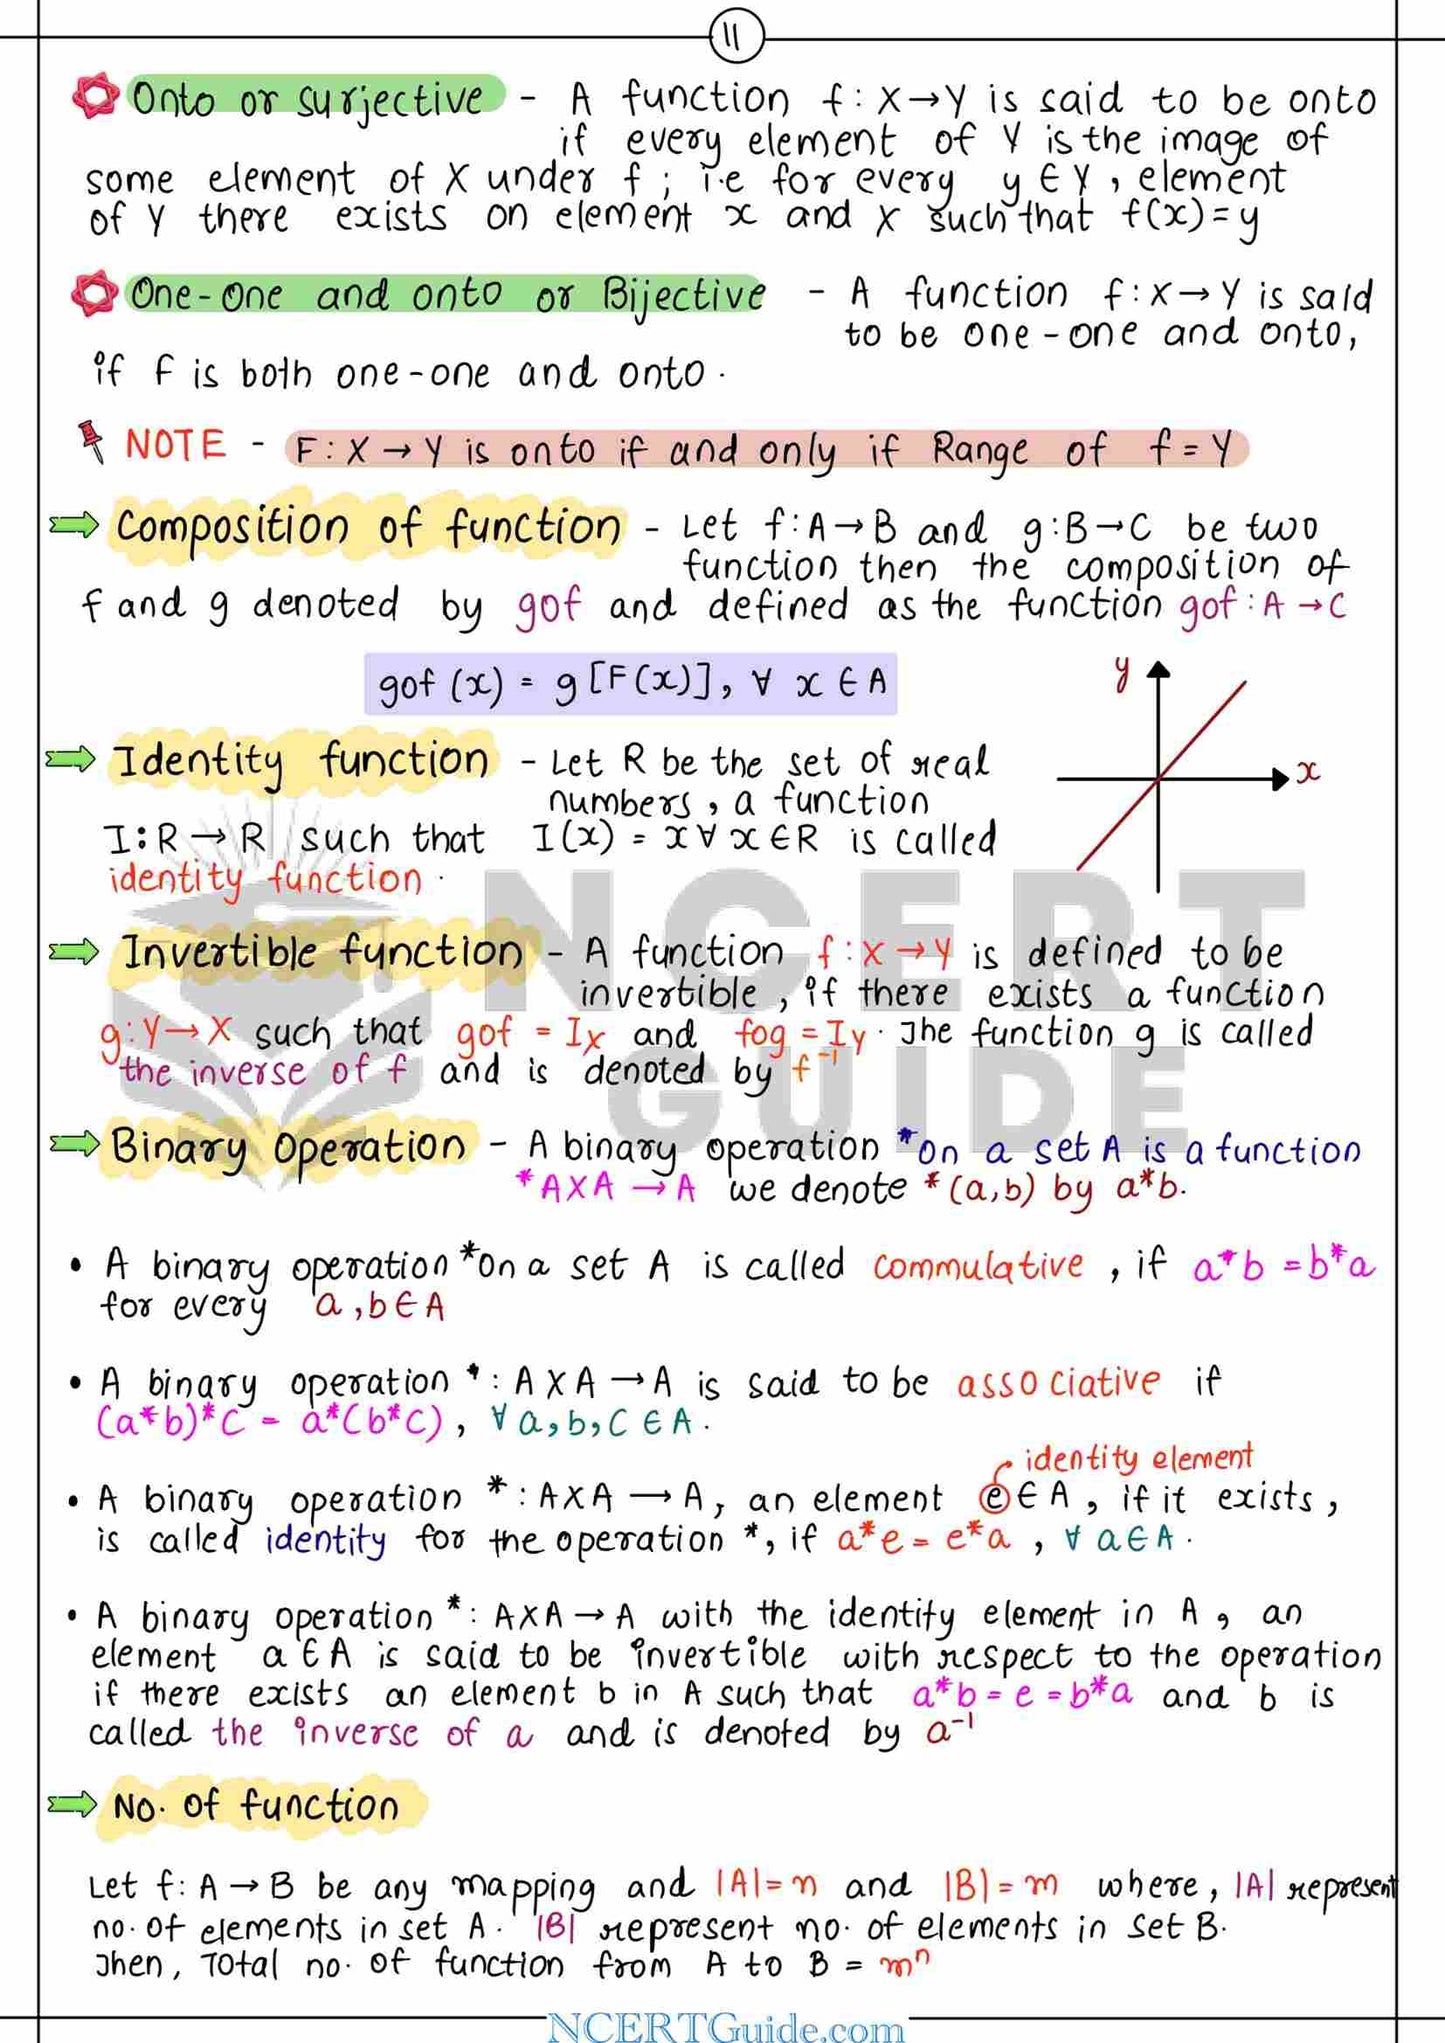 11
Onto or surjective - A function f : X→Y is said to be onto
if every element of Y is the image of
some element of X under f ; i.e for every y ∈ Y , element
of Y there exists on element x and X such that f(x) = y
One-One and onto or Bijective - A function f : X→Y is said
to be one-one and onto,
if f is both one-one and onto.
NOTE - F : X → Y is onto if and only if Range of f = Y
Composition of function - Let f : A→B and g : B→C be two
function then the composition of
f and g denoted by gof and defined as the function gof : A → C
gof (x) = g [F(x)], ∀ x ∈ A
y
x
Identity function - Let R be the set of real
numbers, a function
I : R → R such that I(x) = x ∀ x ∈ R is called
identity function.
NCERT
GUIDE
Invertible function - A function f : X → Y is defined to be
invertible, if there exists a function
g : Y → X such that gof = Ix and fog = Iy. The function g is called
the inverse of f and is denoted by f⁻¹
Binary Operation - A binary operation * on a set A is a function
* A X A → A we denote * (a,b) by a*b.
• A binary operation * on a set A is called commulative, if a*b = b*a
for every a, b ∈ A
• A binary operation * : A X A → A is said to be associative if
(a*b)*C = a*(b*c), ∀ a, b, C ∈ A.
identity element
• A binary operation * : A X A → A, an element e ∈ A, if it exists,
is called identity for the operation *, if a*e = e*a, ∀ a ∈ A.
• A binary operation * : A X A → A with the identity element in A, an
element a ∈ A is said to be invertible with respect to the operation
if there exists an element b in A such that a*b = e = b*a and b is
called the inverse of a and is denoted by a⁻¹
No. of function
Let f : A → B be any mapping and |A| = n and |B| = m where, |A| represent
no. of elements in set A. |B| represent no. of elements in set B.
Then, Total no. of function from A to B = mⁿ
NCERTGuide.com